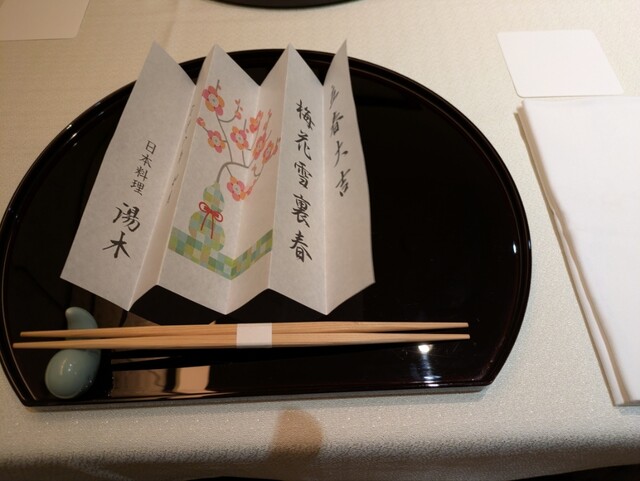 立春大吉
梅花雪裏春
日本料理
湯木